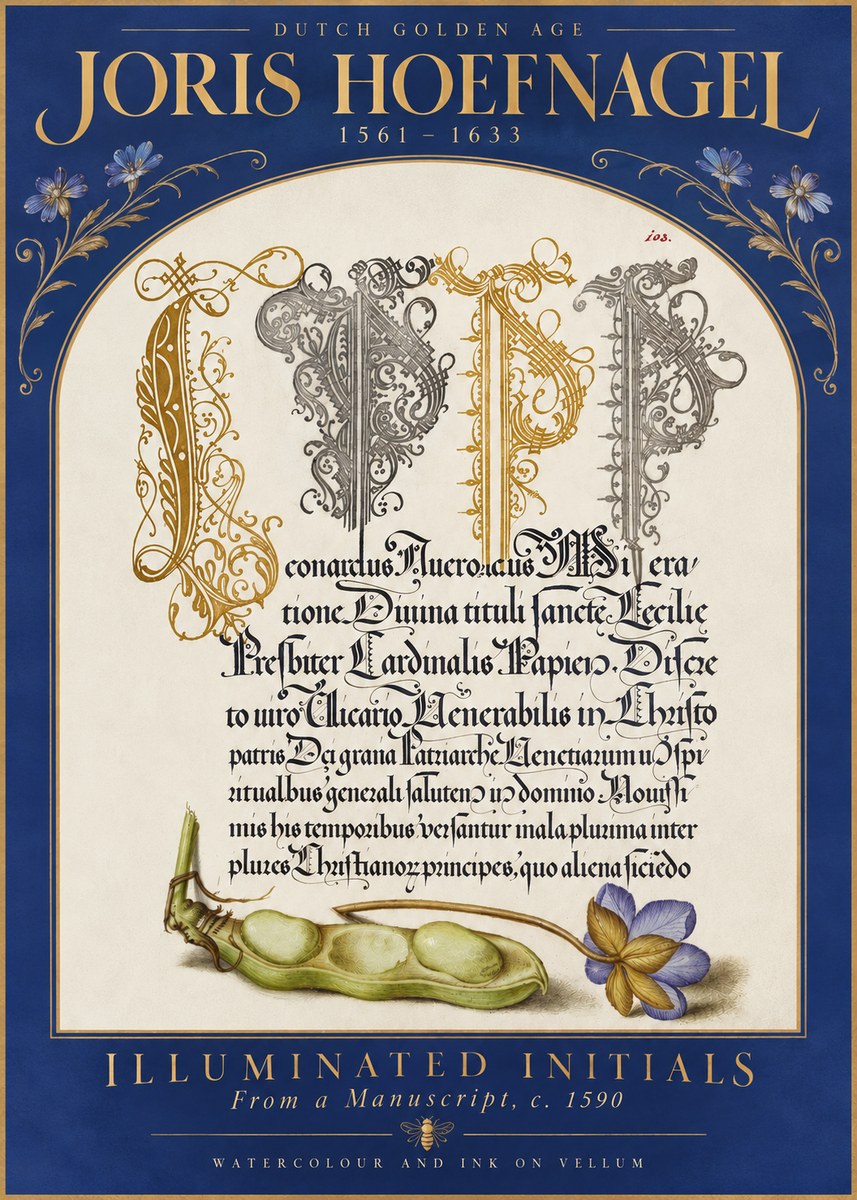 DUTCH GOLDEN AGE
JORIS HOEFNAGEL
1561 – 1633
ios.
L P P P
conardus Aueroldus Mi era
tione Diuina tituli sancte Cecilie
Presbiter Cardinalis Papien. Discre
to uiro Vicario Venerabilis in Christo
patris Dei grana Patriarche Venetiarum
ritualbus generali saluten in domino Nouissi
mis his temporibus versantur mala plurima inter
plures Christianoꝝ principes, quo aliena siciēdo
ILLUMINATED INITIALS
From a Manuscript, c. 1590
WATERCOLOUR AND INK ON VELLUM